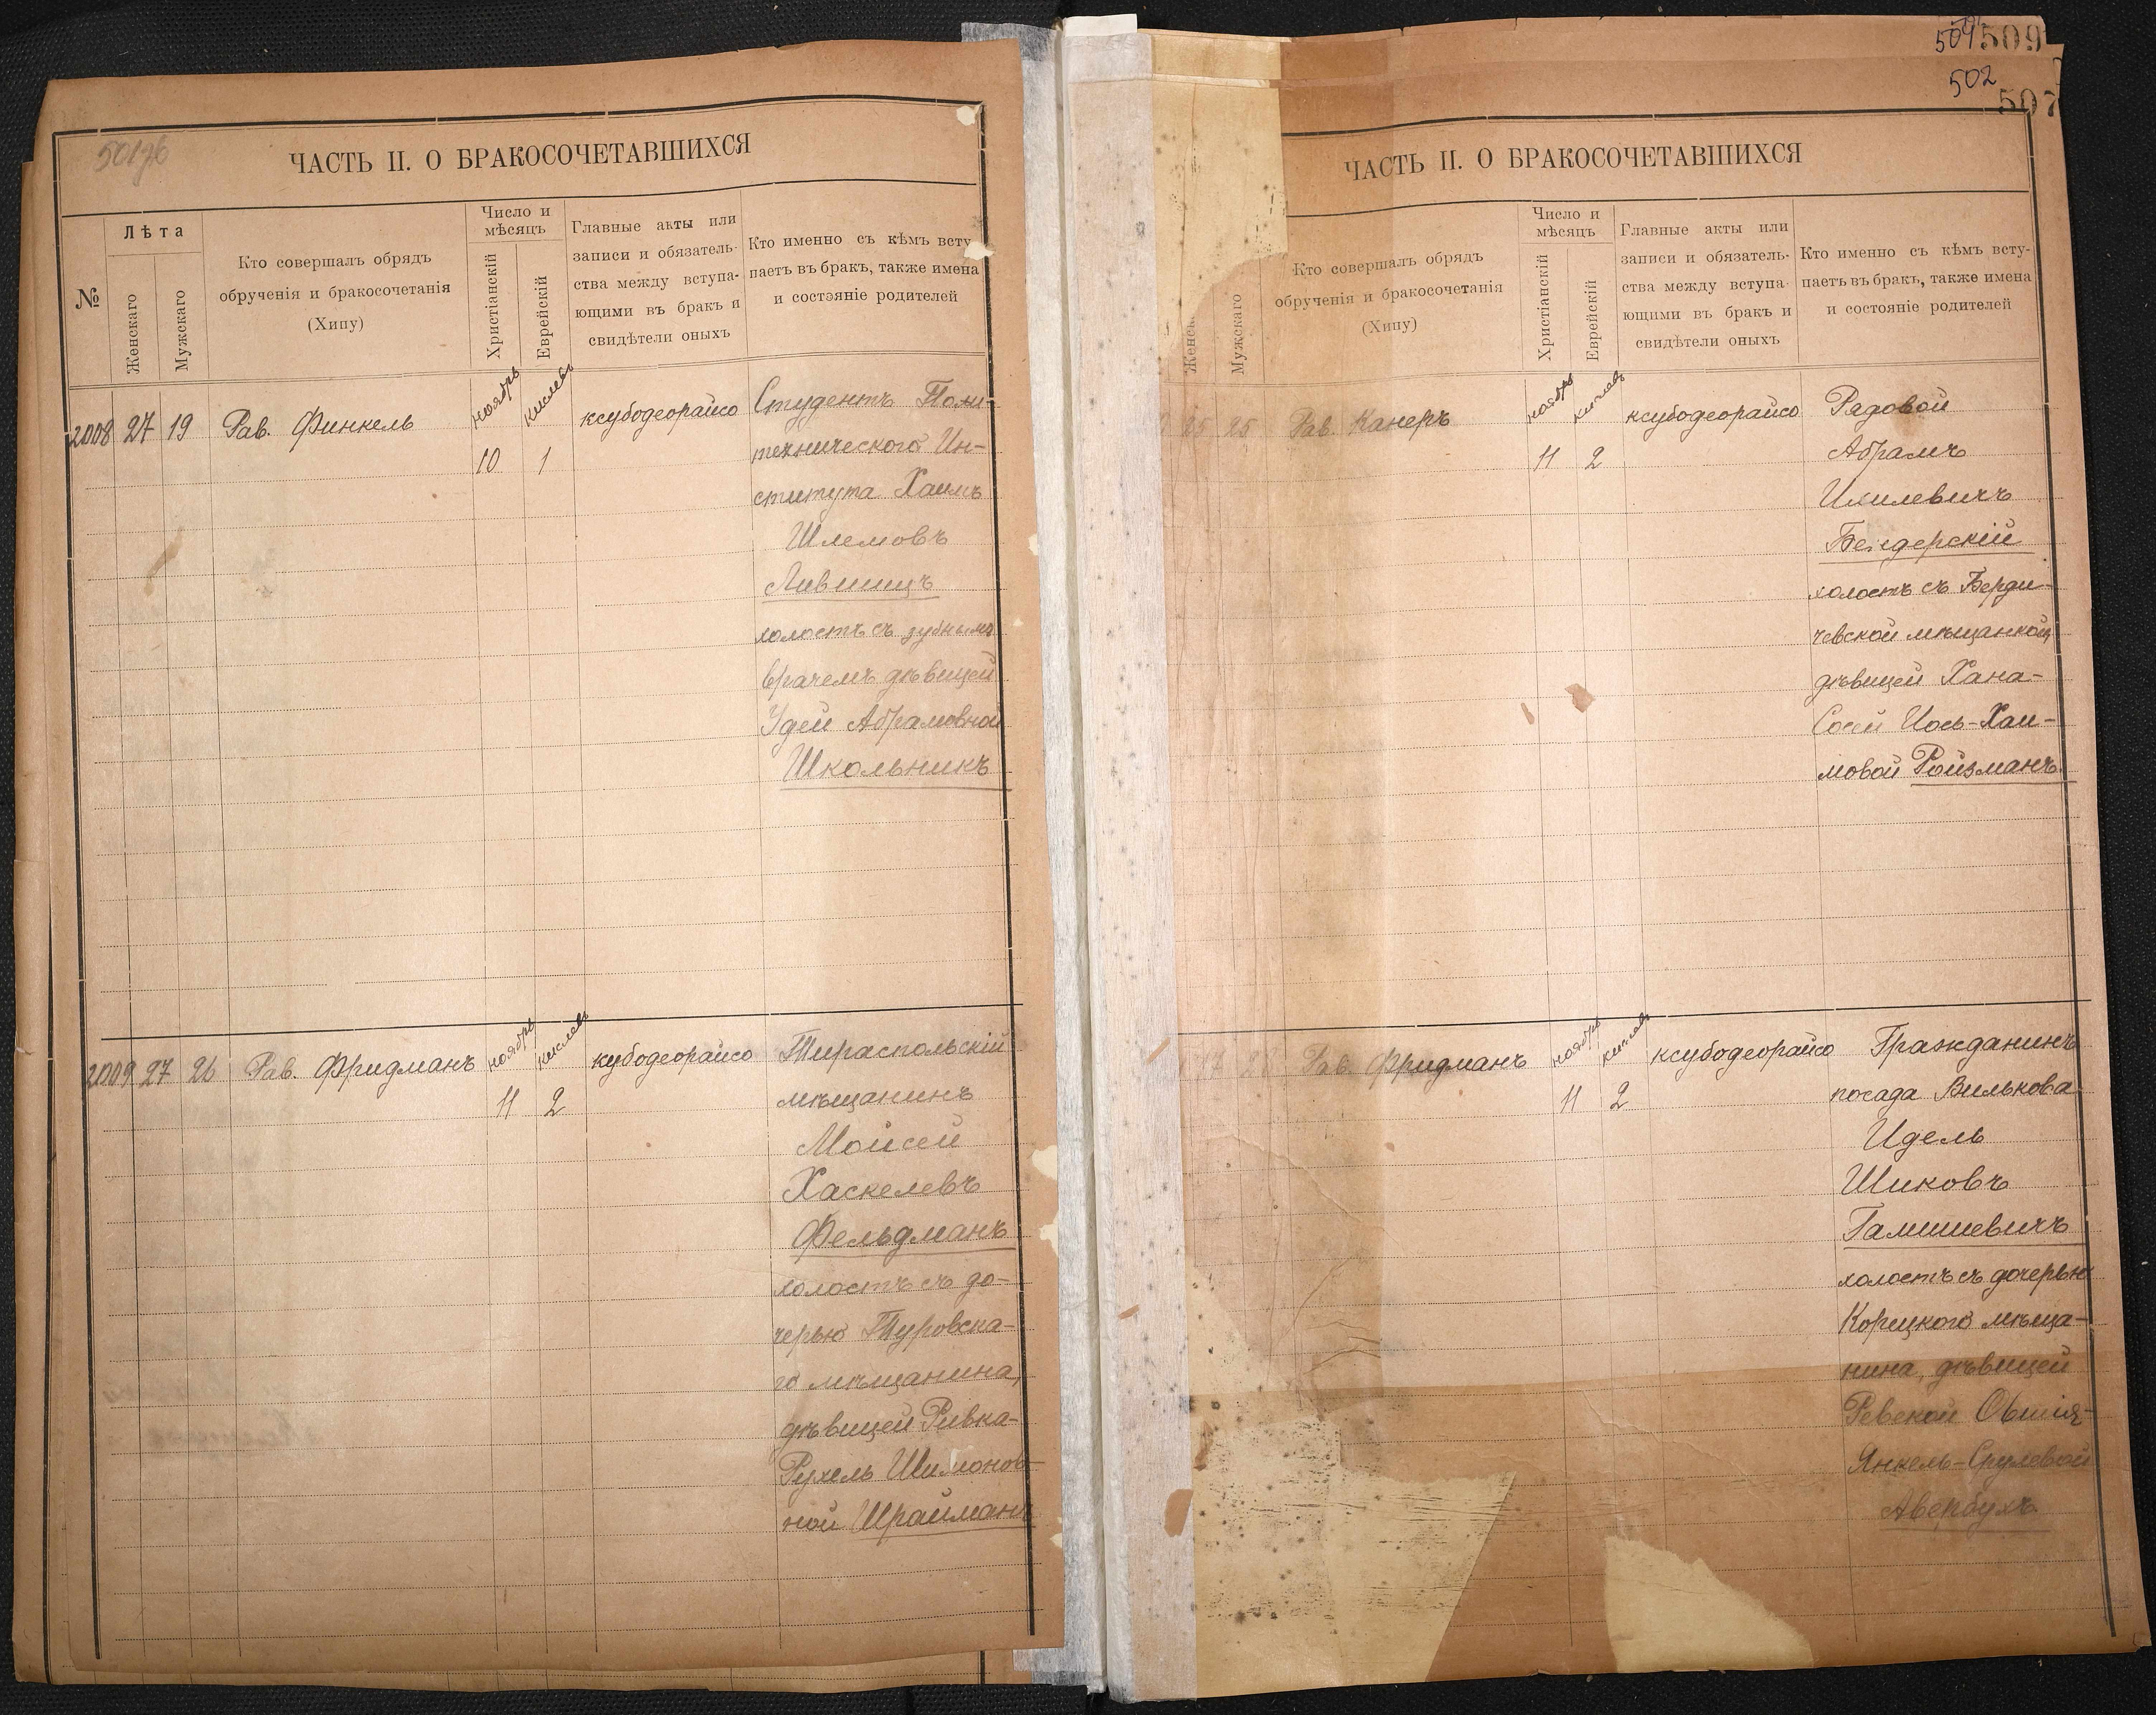 501об
ЧАСТЬ II. О БРАКОСОЧЕТАВШИХСЯ
№
Лѣта
Женскаго
Мужскаго
Кто совершалъ обрядъ
обрученія и бракосочетанія
(Хипу)
Число и
мѣсяцъ
Христіанскій
Еврейскій
Главные акты или
записи и обязатель-
ства между вступа-
ющими въ бракъ и
свидѣтели оныхъ
Кто именно съ кѣмъ всту
паетъ въ бракъ, также имена
и состэяніе родителей
2008 27 19 Рав. Финкель ноябрь кислевъ ксубодеорайсо
10 1
Студентъ Поли-
техническаго Ин-
ститута Хаимъ
Шлемовъ
Лившицъ
холостъ съ зубнымъ
врачемъ дѣвицей
Удей Абрамовной
Школьникъ
2009 27 26 Рав. Фридманъ ноябрь кислевъ кубодеорайсо
11 2
Тираспольскій
мѣщанинъ
Мойсей
Хаскелевъ
Фельдманъ
холостъ съ до-
черью Туровска-
го мѣщанина,
дѣвицей Ривка-
Рухель Шимонов-
ной Шрайманъ
509
502
507
ЧАСТЬ II. О БРАКОСОЧЕТАВШИХСЯ
Женск
Мужскаго
Кто совершалъ обрядъ
обрученія и бракосочетанія
(Хипу)
Число и
мѣсяцъ
Христіанскій
Еврейскій
Главные акты или
записи и обязатель-
ства между вступа-
ющими въ бракъ и
свидѣтели оныхъ
Кто именно съ кѣмъ всту-
паетъ въ бракъ, также имена
и состояніе родителей
25 25 Рав. Канеръ ноябрь кислевъ ксубодеорайсо
11 2
Рядовой
Абрамъ
Ихилевичъ
Бендерскій
холостъ съ Берди-
чевской мѣщанкой,
дѣвицей Хана-
Сосей Іось-Хаи-
мовой Ройзманъ
Рав. Фридманъ ноябрь кислевъ ксубодеорайсо
11 2
Гражданинъ
посада Вилькова
Идель
Шиковъ
Гамшиевичъ
холостъ съ дочерью
Корецкого мѣща-
нина, дѣвицей
Ревекой Овшія-
Янкель-Срулевой
Авербухъ